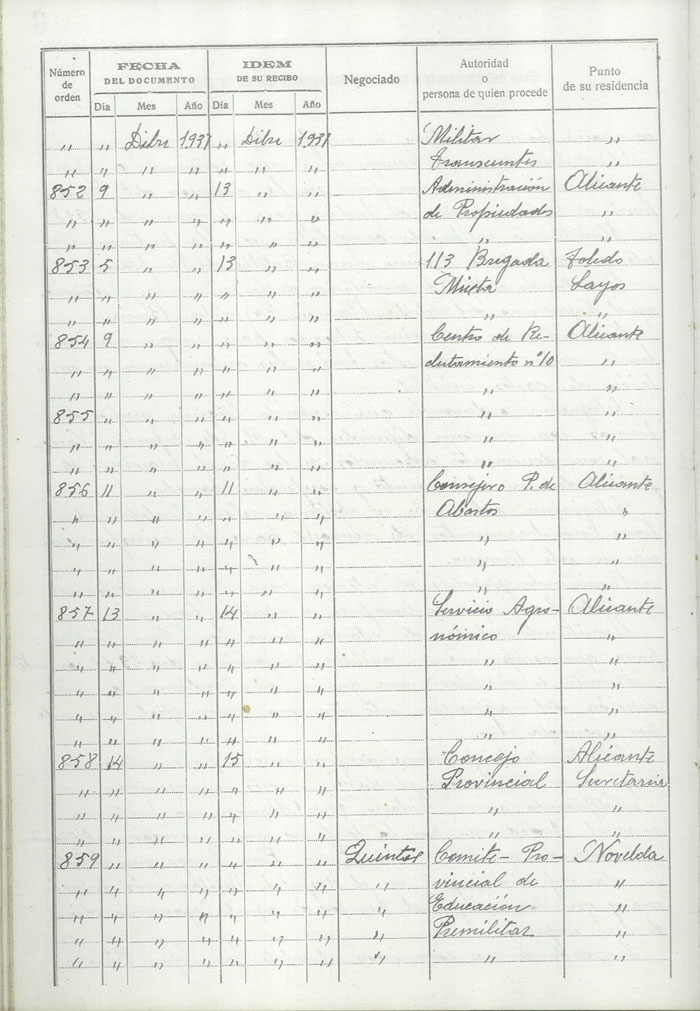 Número de orden
FECHA DEL DOCUMENTO
IDEM DE SU RECIBO
Negociado
Autoridad o persona de quien procede
Punto de su residencia
Día Mes Año Día Mes Año
" " Dibre 1937 " Dibre 1937 Militar "
" " " " " " " Transeuntes "
852 9 " " 13 " " Administración Alicante
" " " " " " " de Propiedades "
" " " " " " " " "
853 5 " " 13 " " 113 Brigada Toledo
" " " " " " " Mixta Layos
" " " " " " " " "
854 9 " " " " " Centro de Re- Alicante
" " " " " " " clutamiento nº 10 "
" " " " " " " " "
855 " " " " " " " "
" " " " " " " " "
" " " " " " " " "
856 11 " " 11 " " Consejero P. de Alicante
" " " " " " " Abastos "
" " " " " " " " "
" " " " " " " " "
" " " " " " " " "
857 13 " " 14 " " Servicio Agro- Alicante
" " " " " " " nómico "
" " " " " " " " "
" " " " " " " " "
" " " " " " " " "
" " " " " " " " "
858 14 " " 15 " " Concejo Alicante
" " " " " " " Provincial Secretaria
" " " " " " " " "
" " " " " " " " "
859 " " " " " " Quintas Comite Pro- Novelda
" " " " " " " " vincial de "
" " " " " " " " Educación "
" " " " " " " " Premilitar "
" " " " " " " " " "